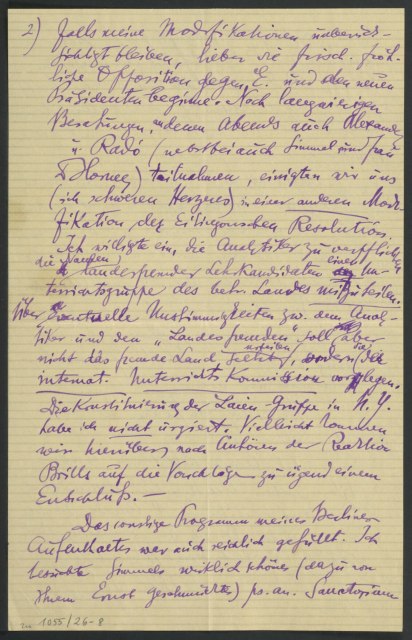 2) falls meine Modifikationen unberück-
sichtigt bleiben, lieber die frisch-fröh-
liche Opposition gegen E. und den neuen
Präsidenten beginne. Nach langwierigen
Beratungen, an denen Abends auch Alexander
u. Radó (nebstbei auch Simmel und Frau
Horney) teilnahmen, einigten wir uns
(ich schweren Herzens) in einer anderen Modi-
fikation der Eitingonschen Resolution.
Ich willigte ein, die Analytiker zu verpflichten
die Namen landesfremder Lehrkandidaten einer Un-
terrichtsgruppe des betr. Landes mitzuteilen.
Über eventuelle Unstimmigkeiten zw. dem Analy-
tiker und den "Landesfremden" soll aber
nicht das fremde Land, sondern der
internat. Unterrichts Kommission vorliegen.
Die Konstituierung der Laien-Gruppe in N. Y.
habe ich nicht urgiert. Vielleicht kommen
wir hierüber, nach Anhören der Reaktion
Brills auf die Vorschläge zu irgend einem
Entschluß. —
Das sonstige Programm meines Berliner
Aufenthaltes war auch reichlich gefüllt. Ich
besuchte Simmels wirklich schönes (dazu von
Ihrem Ernst geschmücktes) ps. an. Sanatorium
1055/26-8